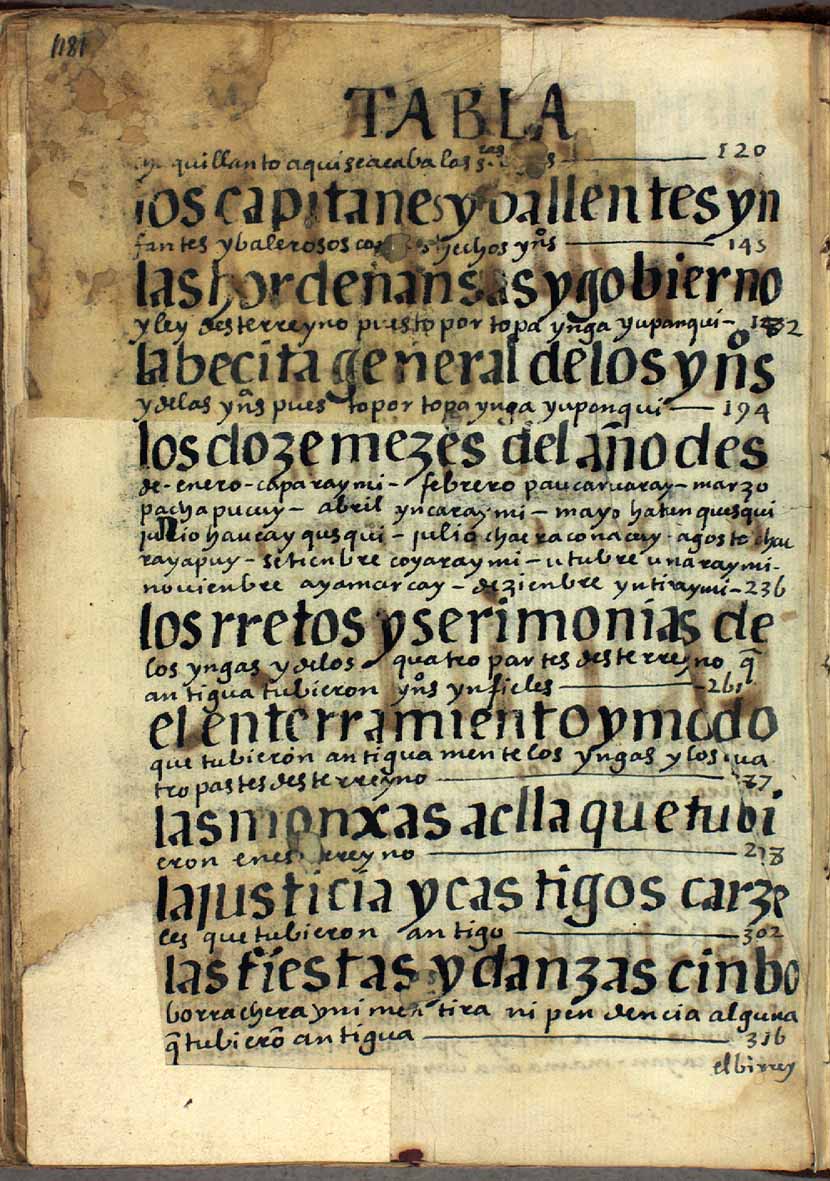 1181
TABLA
quillanto aqui se acaba las s.ras 120
los capitanes y ballentes yn
fantes y balerosos hechos yn̄s 145
las hordenansas y gobierno
y ley desterreyno puesto por topa ynga yupanqui - 182
la becita general de los yn̊s
y de las yn̄s pues to por topa ynga yupanqui 194
los doze mezes del año des
de - enero - capa raymi - febrero paucar uaray - marzo
pacha pucuy - abril ynca raymi - mayo hatun qusqui
junio haucay qusqui - julio chacraconacuy - agosto chac
ra yapuy - setienbre coya raymi - utubre uma raymi -
nouienbre aya marcay - dezienbre ynti raymi - 236
los rretos y serimonias de
los yngas y de los quatro partes desterreyno q̄
antigua tubieron yn̊s ynfieles 261
el enterramiento y modo
que tubieron antiguamente los yngas y los
tro partes desterreyno
las monxas aclla que tubi
eron en reyno
la justicia y castigos carze
les que tubieron antigo 302
las fiestas y danzas cin bo
borrachera y ni mentira ni pendencia alguna
q̄ tubierō antigua 316
el birrey